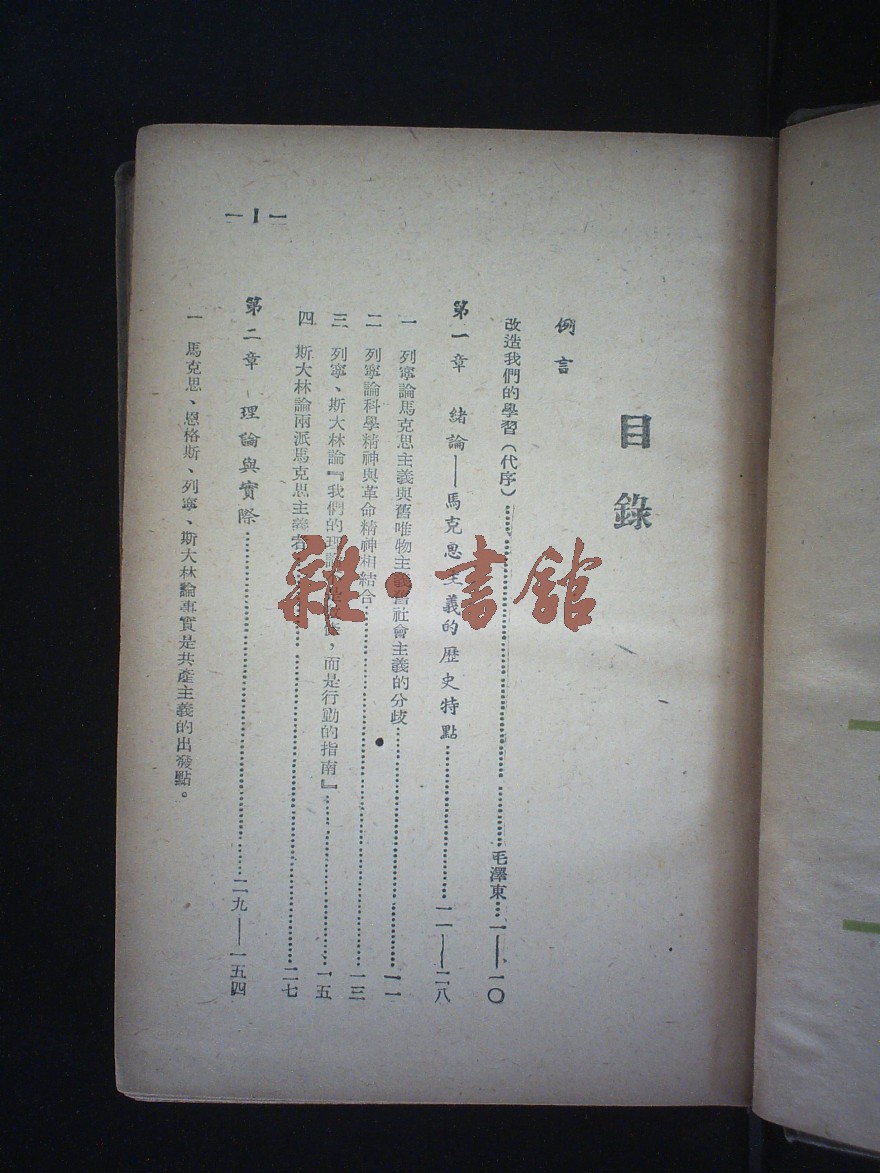 目錄
例言
改造我們的學習(代序)……毛澤東……一——一〇
第一章 緒論——馬克思主義的歷史特點……一一——二八
一 列寧論馬克思主義與舊唯物主義舊社會主義的分歧……一一
二 列寧論科學精神與革命精神相結合……一三
三 列寧、斯大林論『我們的理論,而是行動的指南』……一五
四 斯大林論兩派馬克思主義者……二七
第二章 理論與實際……二九——一五四
一 馬克思、恩格斯、列寧、斯大林論事實是共產主義的出發點。
—1—
雜·書館